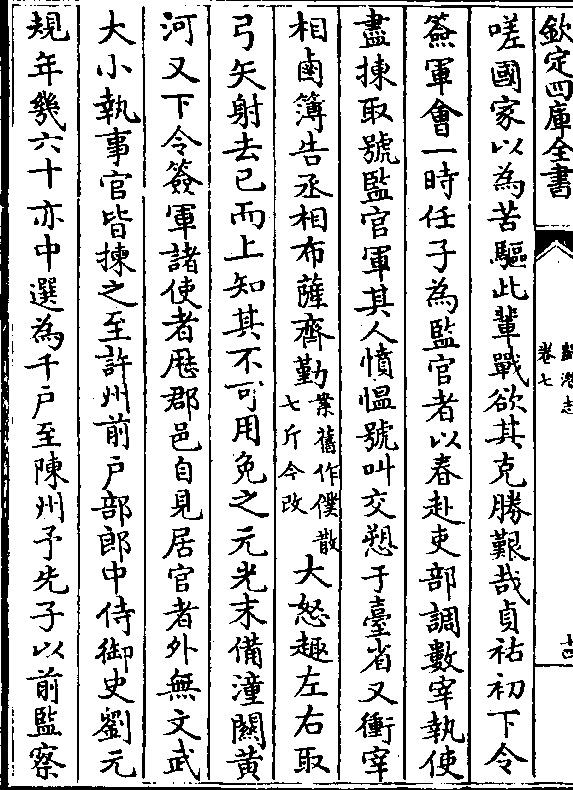 欽定四庫全書
歸潛志
卷七
十四
嗟國家以為苦驅此輩戰欲其克勝艱哉貞祐初下令
簽軍會一時任子為監官者以春赴吏部調數宰執使
盡揀取號監官軍其人憤慍號叫交愬于臺省又衝宰
相鹵簿告丞相布薩齊勤案舊作僕散七斤今改大怒趣左右取
弓矢射去已而上知其不可用免之元光末備潼關黄
河又下令簽軍諸使者歴郡邑自見居官者外無文武
大小執事官皆揀之至許州前户部郎中侍御史劉元
規年幾六十亦中選為千户至陳州予先子以前監察